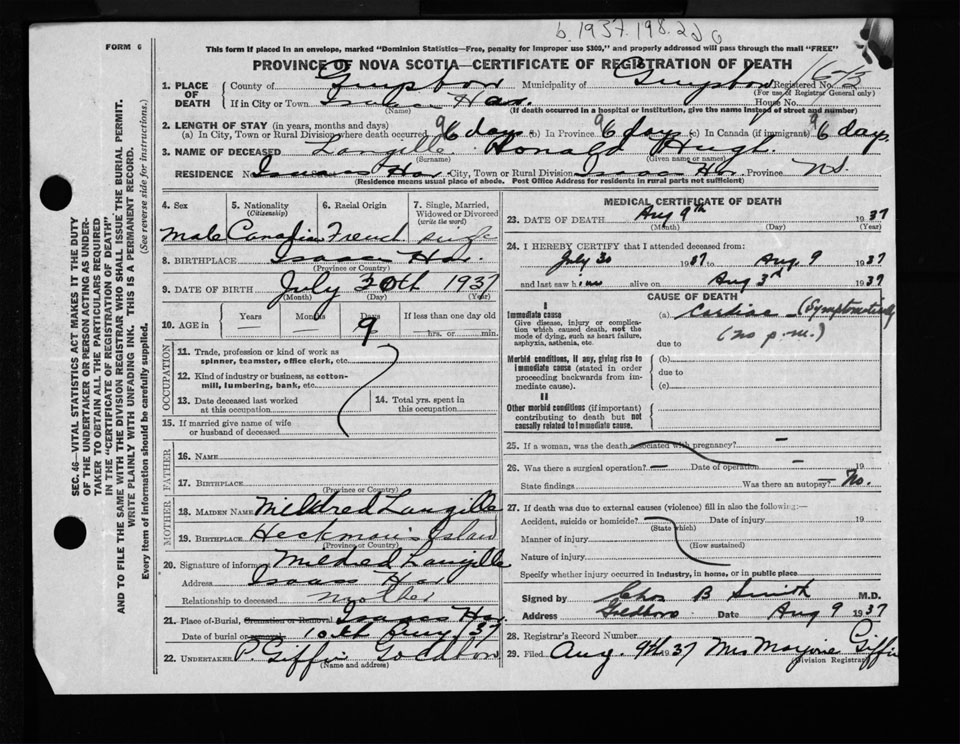 b. 1937. 198.
FORM 6
This form if placed in an envelope, marked "Dominion Statistics—Free, penalty for improper use $300," and properly addressed will pass through the mail "FREE"
PROVINCE OF NOVA SCOTIA—CERTIFICATE OF REGISTRATION OF DEATH
1. PLACE OF DEATH
County of Guysboro Municipality of Guysboro Registered No.
(For use of Registrar General only)
If in City or Town Isaacs Har. House No.
(Name) (If death occurred in a hospital or institution, give the name instead of street and number)
2. LENGTH OF STAY (in years, months and days)
(a) In City, Town or Rural Division where death occurred days (b) In Province days (c) In Canada (if immigrant) days
3. NAME OF DECEASED Langille Donald Hugh.
(Surname) (Given name or names)
RESIDENCE No. Isaacs Har. City, Town or Rural Division Isaacs Har. Province N.S.
(Residence means usual place of abode. Post Office Address for residents in rural parts not sufficient)
4. Sex
Male
5. Nationality
(Citizenship)
Canadian
6. Racial Origin
French
7. Single, Married,
Widowed or Divorced
(write the word)
single
8. BIRTHPLACE Isaacs Har.
(Province or Country)
9. DATE OF BIRTH July 1937
(Month) (Day) (Year)
10. AGE in
Years Months Days If less than one day old
9
hrs. or min.
OCCUPATION
11. Trade, profession or kind of work as
spinner, teamster, office clerk, etc.
12. Kind of industry or business, as cotton-
mill, lumbering, bank, etc.
13. Date deceased last worked
at this occupation
14. Total yrs. spent in
this occupation
15. If married give name of wife
or husband of deceased
FATHER
16. NAME
17. BIRTHPLACE
(Province or Country)
MOTHER
18. MAIDEN NAME Mildred Langille
19. BIRTHPLACE Heckman's Island
(Province or Country)
20. Signature of informant Mildred Langille
Address Isaacs Har
Relationship to deceased mother
21. Place of Burial, Cremation or Removal Isaacs Har.
Date of burial or removal 10th Aug 37
22. UNDERTAKER P. Giffin Goldboro
(Name and address)
MEDICAL CERTIFICATE OF DEATH
23. DATE OF DEATH Aug 9th 1937
(Month) (Day) (Year)
24. I HEREBY CERTIFY that I attended deceased from:
July 30 1937 to Aug 9 1937
and last saw him alive on Aug 3rd 1937
CAUSE OF DEATH
I
Immediate cause
Give disease, injury or complica-
tion which caused death, not the
mode of dying, such as heart failure,
asphyxia, asthenia, etc.
(a) Cardiac (Symptomatically)
(no p.m.)
due to
Morbid conditions, if any, giving rise to
immediate cause (stated in order
proceeding backwards from im-
mediate cause).
(b)
due to
(c)
II
Other morbid conditions (if important)
contributing to death but not
causally related to immediate cause.
25. If a woman, was the death associated with pregnancy? —
26. Was there a surgical operation? — Date of operation — 19
State findings Was there an autopsy? No.
27. If death was due to external causes (violence) fill in also the following:—
Accident, suicide or homicide? — Date of injury 19
(State which)
Manner of injury
(How sustained)
Nature of injury
Specify whether injury occurred in industry, in home, or in public place
Signed by Chas B Smith M.D.
Address Goldboro Date Aug 9 1937
28. Registrar's Record Number
29. Filed Aug. 9th 1937 Mrs Marjorie Giffin
(Division Registrar)
SEC. 46—VITAL STATISTICS ACT MAKES IT THE DUTY
OF THE UNDERTAKER OR PERSON ACTING AS UNDER-
TAKER TO OBTAIN ALL THE PARTICULARS REQUIRED
IN THE "CERTIFICATE OF REGISTRATION OF DEATH"
AND TO FILE THE SAME WITH THE DIVISION REGISTRAR WHO SHALL ISSUE THE BURIAL PERMIT.
WRITE PLAINLY WITH UNFADING INK. THIS IS A PERMANENT RECORD.
Every item of information should be carefully supplied. (See reverse side for instructions.)